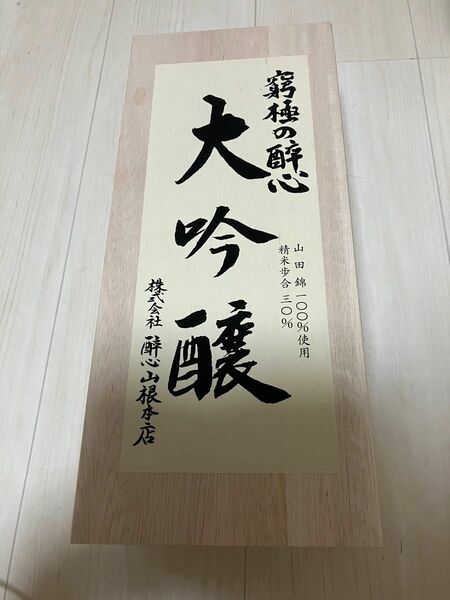 窮極の醉心
大吟醸
山田錦一〇〇%使用
精米歩合 三〇%
株式会社 醉心山根本店